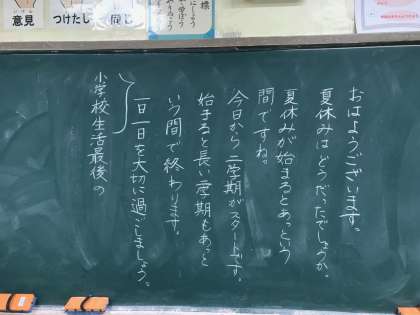 意見
つけたし
同じ
様
おはようございます。
夏休みはどうだったでしょうか。
夏休みが始まるとあっという
間ですね。
今日から二学期がスタートです。
始まると長い二学期もあっと
いう間で終わります。
一日一日を大切に過ごしましょう。
小学校生活最後の